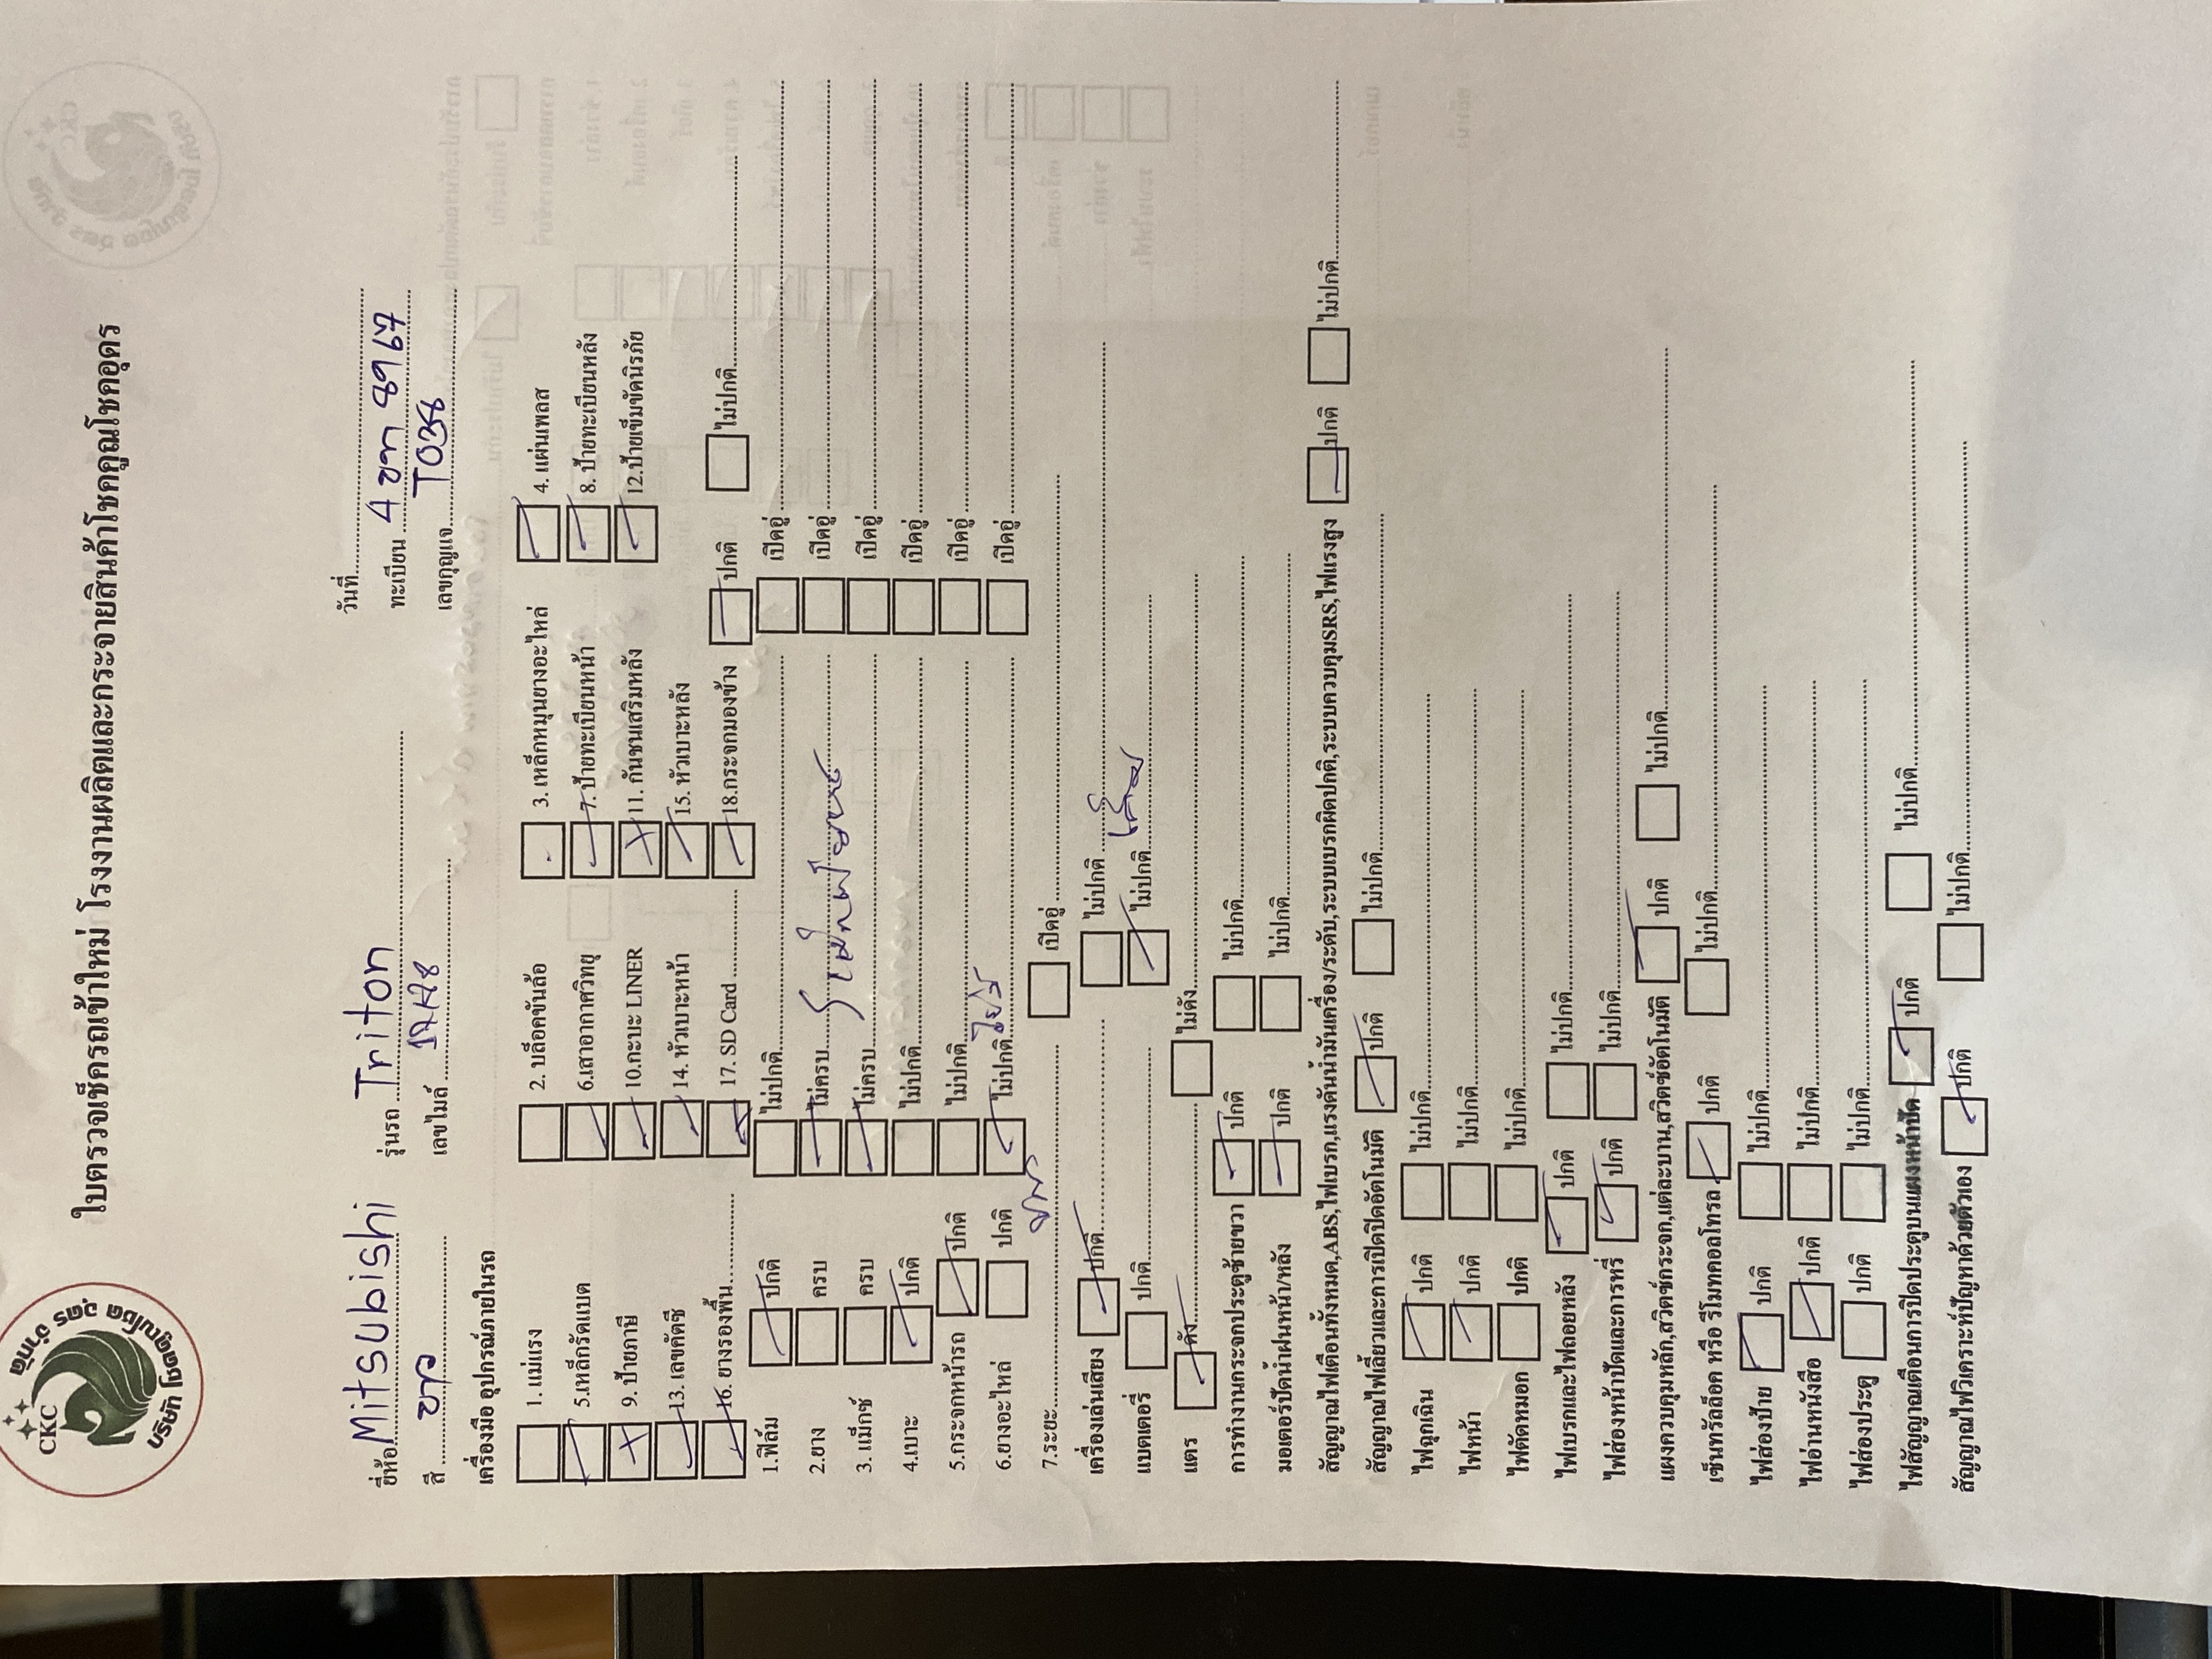 CKC
บริษัท โชคคูณโชค อุดร จำกัด
ใบตรวจเช็ครถเข้าใหม่ โรงงานผลิตและกระจายสินค้าโชคคูณโชคอุดร
วันที่
ยี่ห้อ Mitsubishi รุ่นรถ Triton ทะเบียน 4 ฒฑ 8967
สี ขาว เลขไมล์ เลขกุญแจ T038
เครื่องมือ อุปกรณ์ภายในรถ
1. แม่แรง 2. บล็อคขันล้อ 3. เหล็กหมุนยางอะไหล่ 4. แผ่นเพลส
5.เหล็กรัดแบต 6.เสาอากาศวิทยุ 7. ป้ายทะเบียนหน้า 8. ป้ายทะเบียนหลัง
9. ป้ายภาษี 10.กะบะ LINER 11. กันชนเสริมหลัง 12.ป้ายเข็มขัดนิรภัย
13. เลขคัตซี 14. หัวเบาะหน้า 15. หัวเบาะหลัง
16. ยางรองพื้น 17. SD Card 18.กระจกมองข้าง ปกติ ไม่ปกติ
1.ฟิล์ม ปกติ ไม่ปกติ เปิดอู่
2.ยาง ครบ ไม่ครบ เปิดอู่
3. แม็กซ์ ครบ ไม่ครบ เปิดอู่
4.เบาะ ปกติ ไม่ปกติ เปิดอู่
5.กระจกหน้ารถ ปกติ ไม่ปกติ เปิดอู่
6.ยางอะไหล่ ปกติ ไม่ปกติ เปิดอู่
7.ระยะ เปิดอู่
เครื่องเล่นเสียง ปกติ ไม่ปกติ
แบตเตอรี่ ปกติ ไม่ปกติ
แตร ดัง ไม่ดัง
การทำงานกระจกประตูซ้ายขวา ปกติ ไม่ปกติ
มอเตอร์ปัดน้ำฝนหน้า/หลัง ปกติ ไม่ปกติ
สัญญาณไฟเตือนทั้งหมด,ABS,ไฟเบรก,แรงดันน้ำมันเครื่อง/ระดับ,ระบบเบรกผิดปกติ,ระบบควบคุมSRS,ไฟแรงสูง ปกติ ไม่ปกติ
สัญญาณไฟเลี้ยวและการเปิดปิดอัตโนมัติ ปกติ ไม่ปกติ
ไฟฉุกเฉิน ปกติ ไม่ปกติ
ไฟหน้า ปกติ ไม่ปกติ
ไฟตัดหมอก ปกติ ไม่ปกติ
ไฟเบรกและไฟถอยหลัง ปกติ ไม่ปกติ
ไฟส่องหน้าปัดและการหรี่ ปกติ ไม่ปกติ
แผงควบคุมหลัก,สวิตช์กระจก,แต่ละบาน,สวิตช์อัตโนมัติ ปกติ ไม่ปกติ
เซ็นทรัลล็อค หรือ รีโมทคอลโทรล ปกติ ไม่ปกติ
ไฟส่องป้าย ปกติ ไม่ปกติ
ไฟอ่านหนังสือ ปกติ ไม่ปกติ
ไฟส่องประตู ปกติ ไม่ปกติ
ไฟสัญญาณเตือนการปิดประตูบนแผงหน้าปัด ปกติ ไม่ปกติ
สัญญาณไฟวิเคราะห์ปัญหาด้วยตัวเอง ปกติ ไม่ปกติ